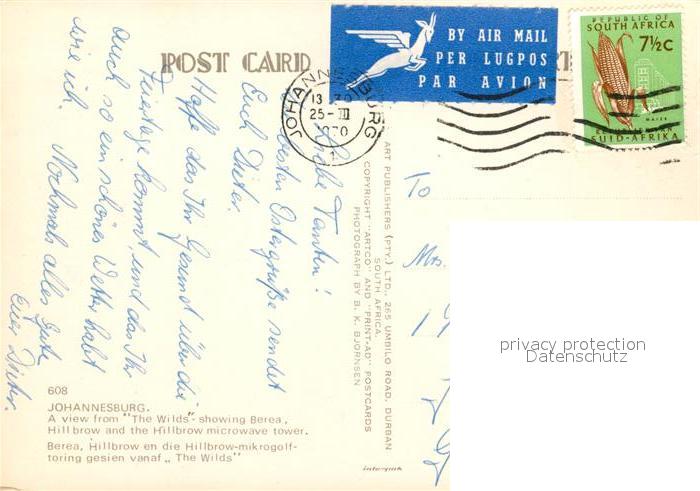 POST CARD
BY AIR MAIL
PER LUGPOS
PAR AVION
REPUBLIC OF
SOUTH AFRICA
7½c
MAIZE
SUID-AFRIKA
JOHANNESBURG
25-III
1970
Liebe Tanten!
besten Ostergrüße sendet
Euch Dieter.
Hoffe das Ihr Gesund über die
Feiertage kommt, und das Ihr
auch so ein schönes Wetter habt
wie ich. Nochmals alles Gute
Euer Dieter.
ART PUBLISHERS (PTY.) LTD., 265 UMBILO ROAD, DURBAN
SOUTH AFRICA.
COPYRIGHT "ARTCO" AND "PRINT-AD" POSTCARDS
PHOTOGRAPH BY B. K. BJORNSEN
To
Mrs.
privacy protection
Datenschutz
608
JOHANNESBURG.
A view from "The Wilds" showing Berea,
Hillbrow and the Hillbrow microwave tower.
Berea, Hillbrow en die Hillbrow-mikrogolf-
toring gesien vanaf „ The Wilds"